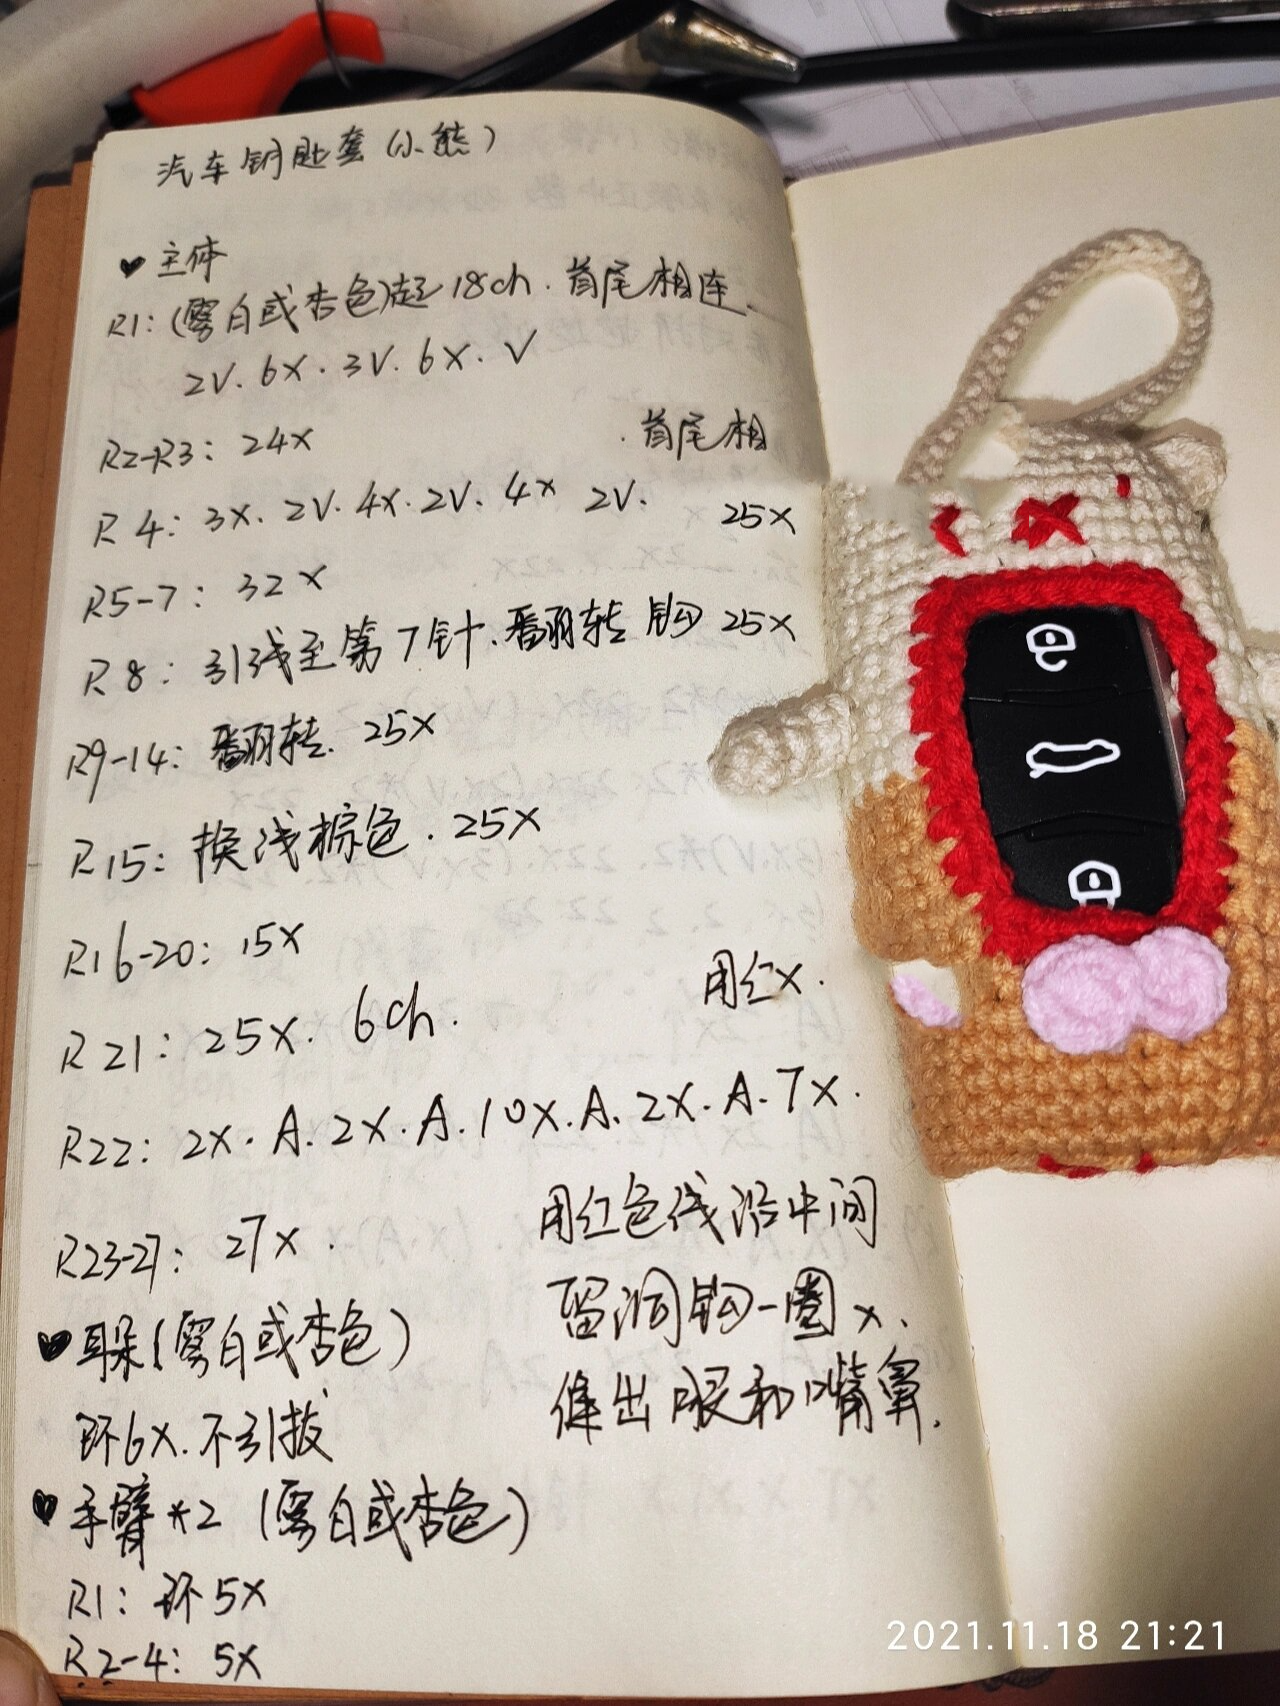 汽车钥匙套(小熊)
♥主体
R1:(雾白或杏色)起18ch.首尾相连.
2V.6X.3V.6X.V
R2-R3: 24X
.首尾相
R4: 3X.2V.4X.2V.4X 2V.
25X
R5-7: 32X
R8: 引线至第7针.翻转钩25X
R9-14: 翻转.25X
R15: 换浅棕色.25X
R16-20: 15X
用红X.
R21: 25X.6ch.
R22: 2X.A.2X.A.10X.A.2X.A.7X.
R23-27: 27X.
用红色线沿中间
留洞钩一圈X.
缝出眼和嘴鼻.
♥耳朵(雾白或杏色)
环6X.不引拔
♥手臂*2(雾白或杏色)
R1: 环5X
R2-4: 5X
2021.11.18 21:21